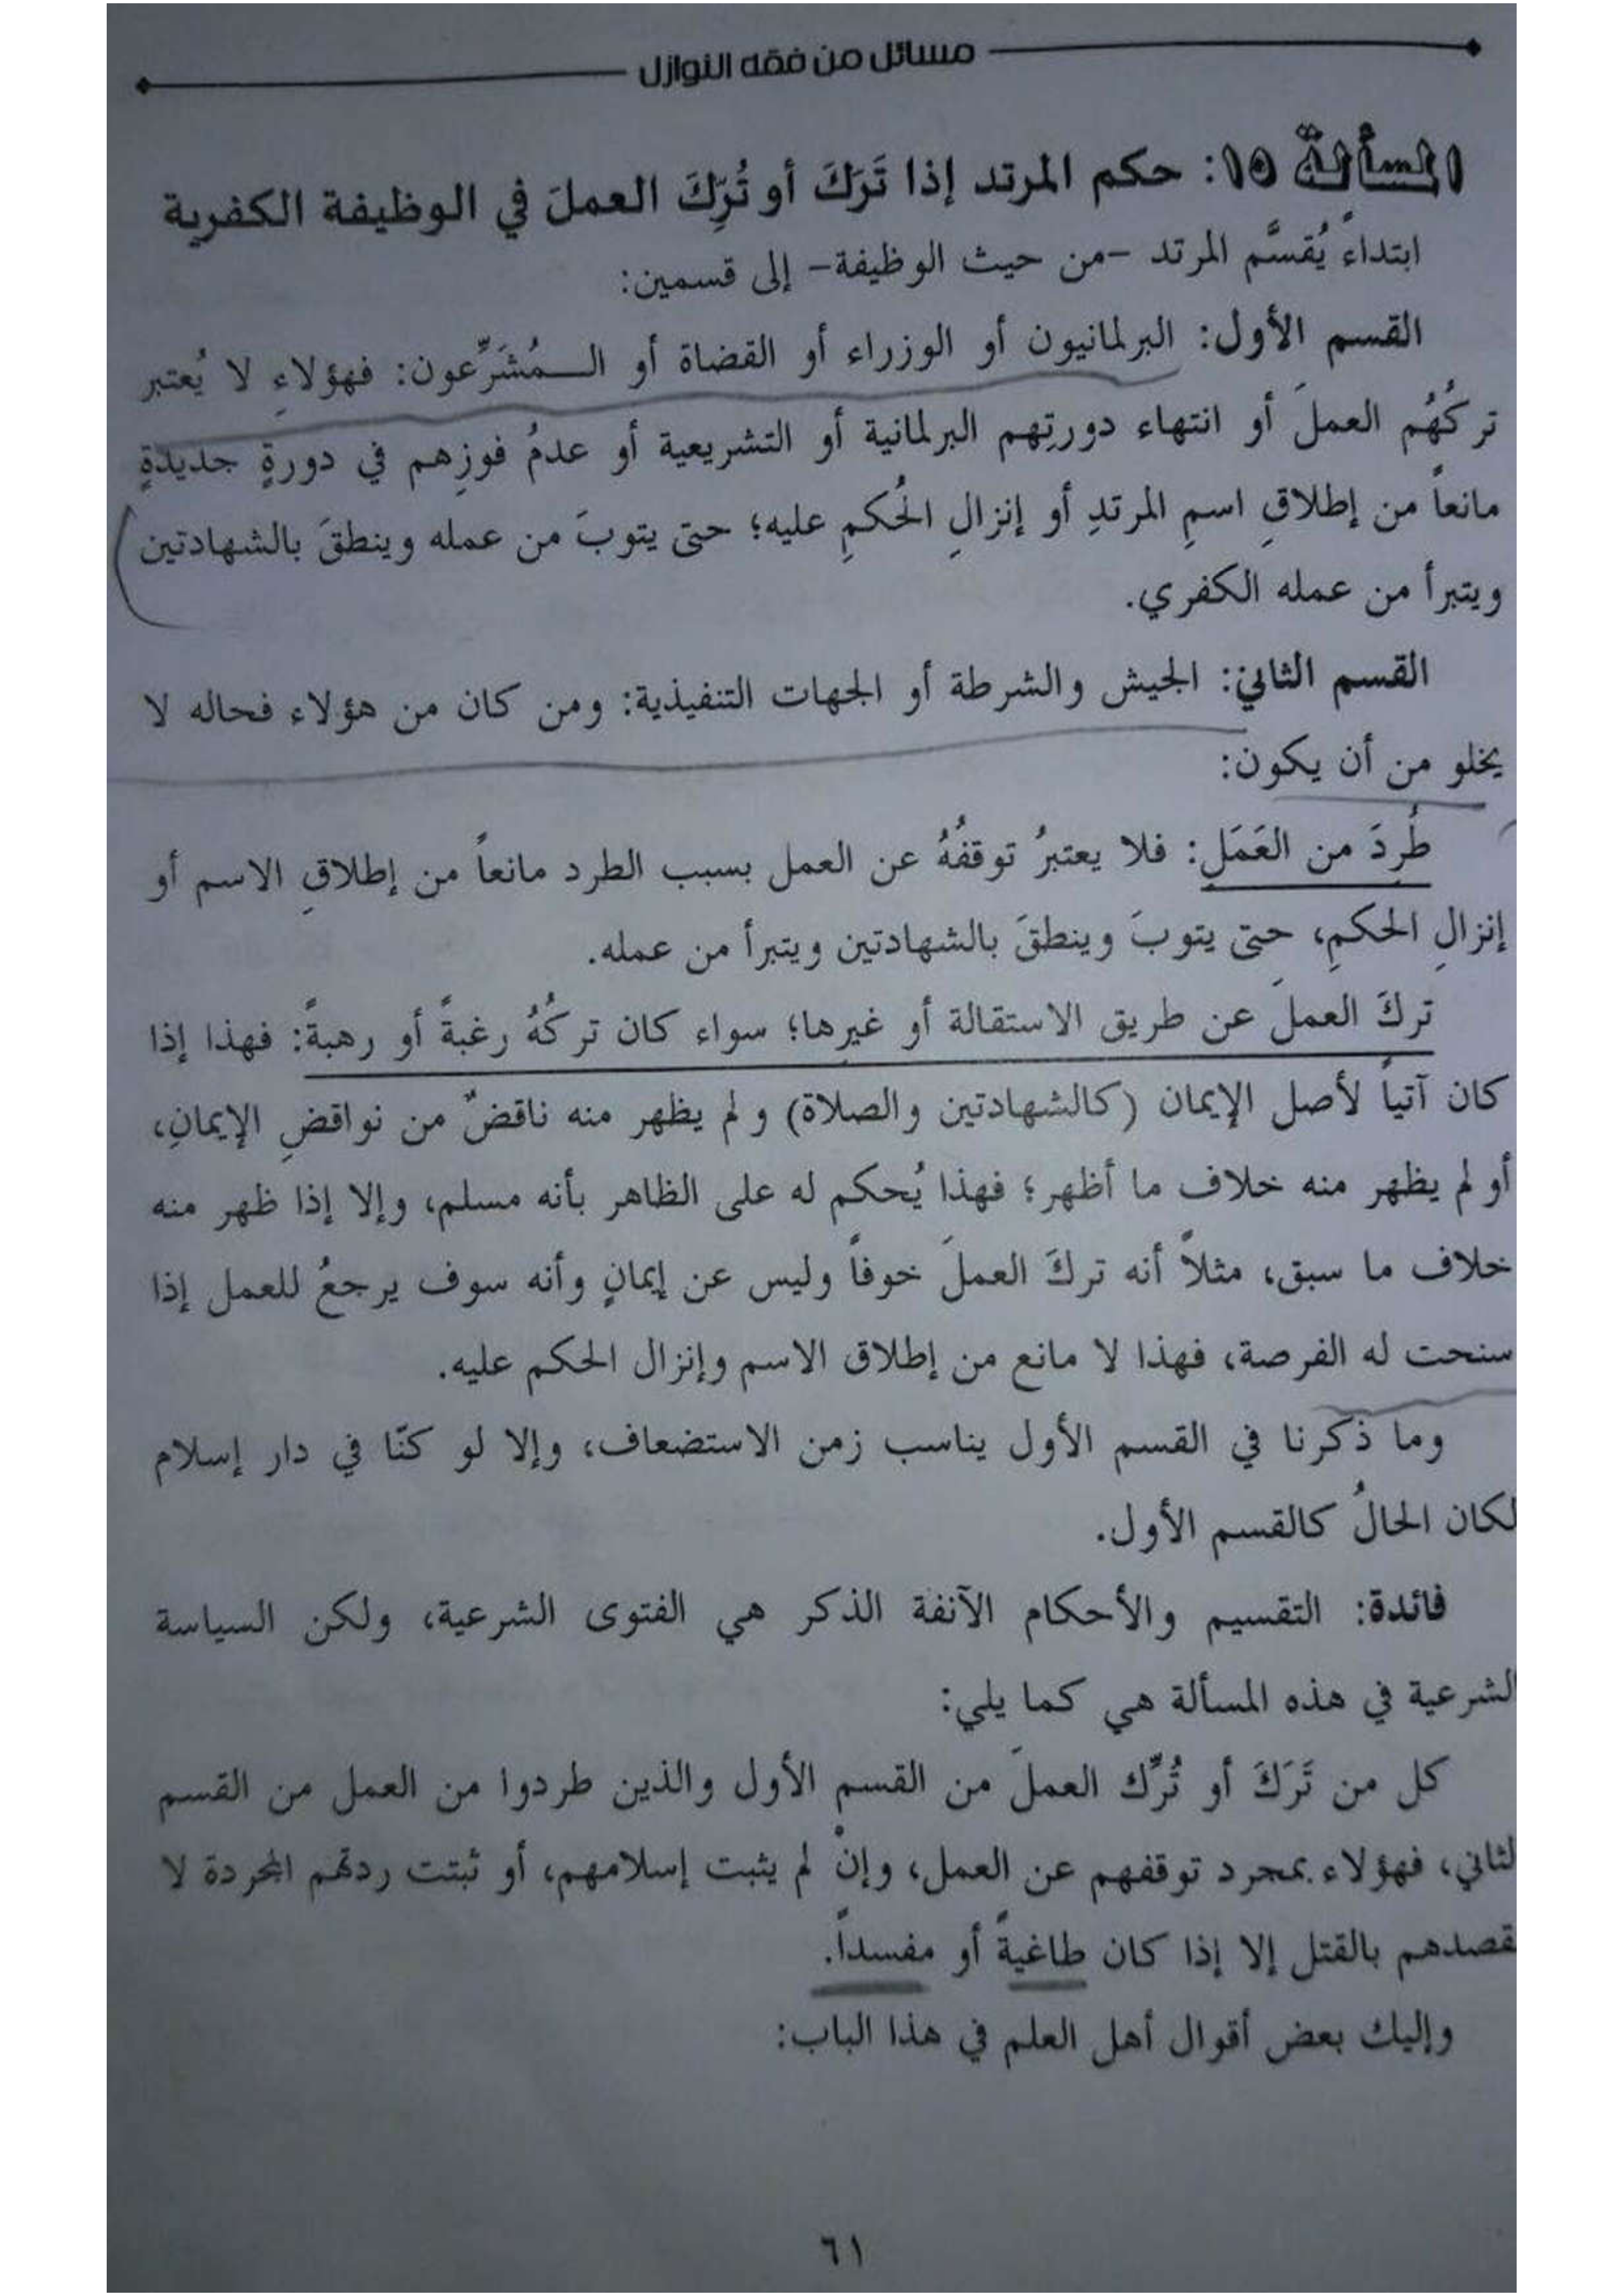 مسائل من فقه النوازل
المسألة ١٥: حكم المرتد إذا تَرَكَ أو تُرِّكَ العملَ في الوظيفة الكفرية
ابتداءً يُقسَّم المرتد -من حيث الوظيفة- إلى قسمين:
القسم الأول: البرلمانيون أو الوزراء أو القضاة أو الـمُشَرِّعون: فهؤلاءِ لا يُعتبر
تركُهُم العملَ أو انتهاء دورتِهم البرلمانية أو التشريعية أو عدمُ فوزِهم في دورةٍ جديدةٍ
مانعاً من إطلاقِ اسمِ المرتدِ أو إنزالِ الحُكمِ عليه؛ حتى يتوبَ من عمله وينطقَ بالشهادتين
ويتبرأ من عمله الكفري.
القسم الثاني: الجيش والشرطة أو الجهات التنفيذية: ومن كان من هؤلاء فحاله لا
يخلو من أن يكون:
طُرِدَ من العَمَلِ: فلا يعتبرُ توقفُهُ عن العمل بسبب الطرد مانعاً من إطلاقِ الاسم أو
إنزالِ الحكمِ، حتى يتوبَ وينطقَ بالشهادتين ويتبرأ من عمله.
تركَ العملَ عن طريق الاستقالة أو غيرِها؛ سواء كان تركُهُ رغبةً أو رهبةً: فهذا إذا
كان آتياً لأصل الإيمان (كالشهادتين والصلاة) ولم يظهر منه ناقضٌ من نواقضِ الإيمانِ،
أو لم يظهر منه خلاف ما أظهر؛ فهذا يُحكم له على الظاهر بأنه مسلم، وإلا إذا ظهر منه
خلاف ما سبق، مثلاً أنه تركَ العملَ خوفاً وليس عن إيمانٍ وأنه سوف يرجعُ للعمل إذا
سنحت له الفرصة، فهذا لا مانع من إطلاق الاسم وإنزال الحكم عليه.
وما ذكرنا في القسم الأول يناسب زمن الاستضعاف، وإلا لو كنّا في دار إسلام
لكان الحالُ كالقسم الأول.
فائدة: التقسيم والأحكام الآنفة الذكر هي الفتوى الشرعية، ولكن السياسة
الشرعية في هذه المسألة هي كما يلي:
كل من تَرَكَ أو تُرِّك العملَ من القسم الأول والذين طردوا من العمل من القسم
لثاني، فهؤلاء بمجرد توقفهم عن العمل، وإنْ لم يثبت إسلامهم، أو ثبتت ردتهم المجردة لا
قصدهم بالقتل إلا إذا كان طاغيةً أو مفسداً.
وإليك بعض أقوال أهل العلم في هذا الباب:
٦١